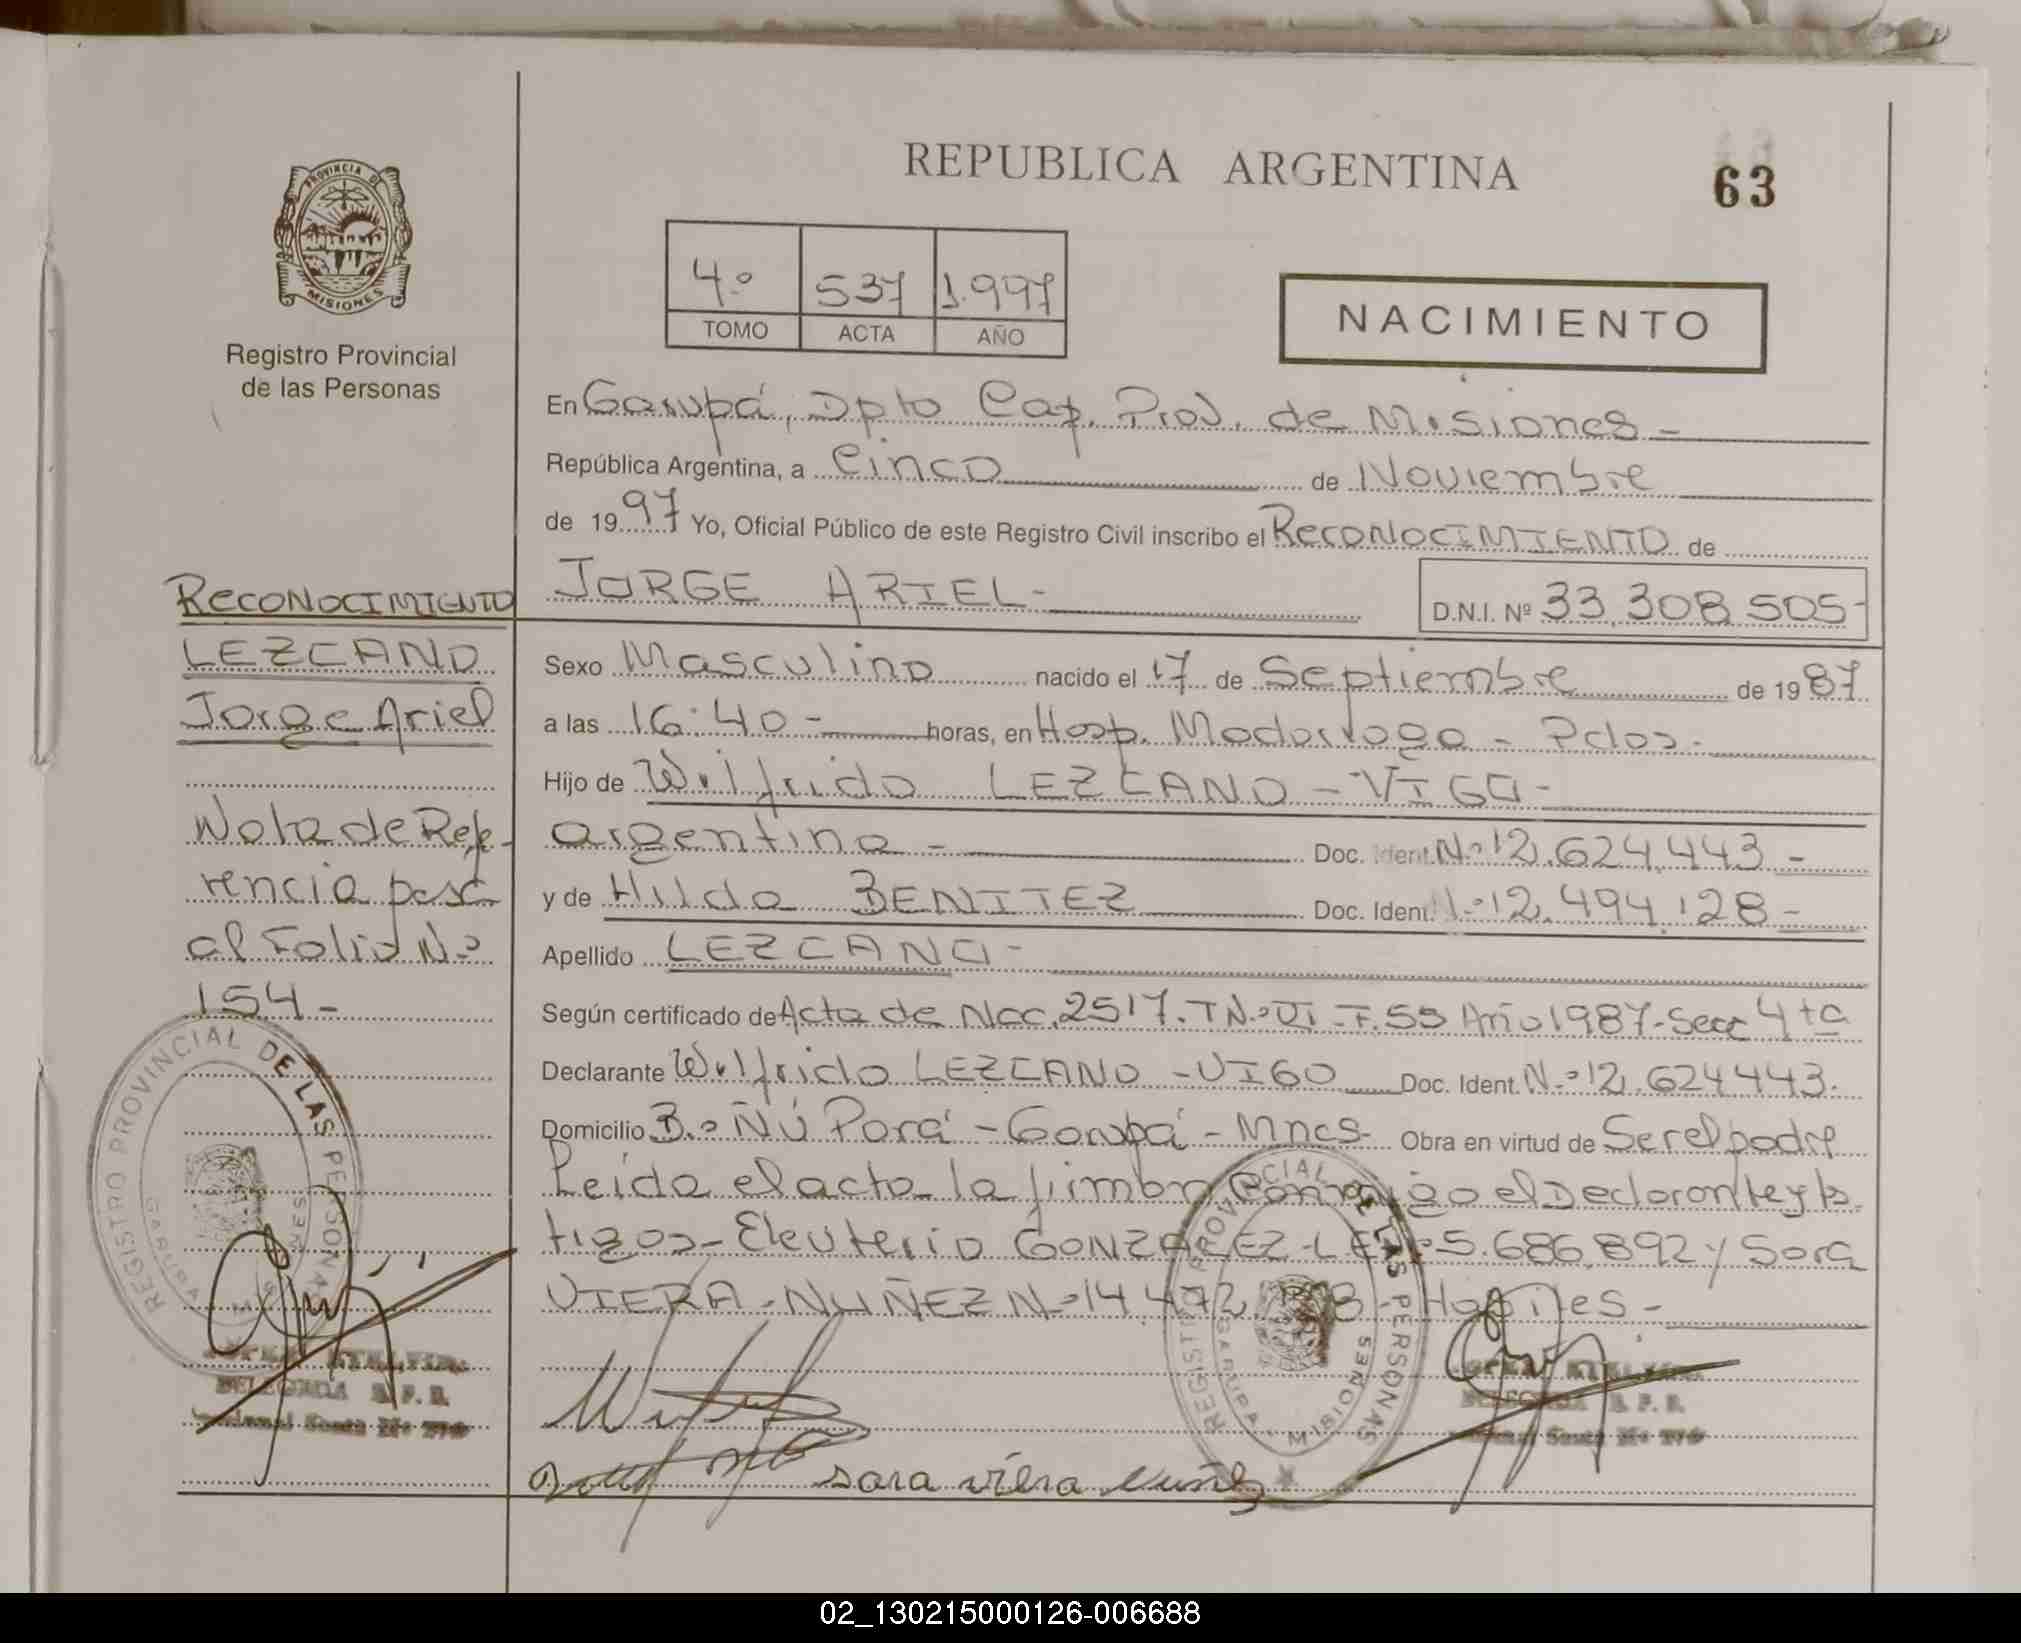 REPUBLICA ARGENTINA
63
PROVINCIA DE
MISIONES
Registro Provincial
de las Personas
4º 537 1.997
TOMO ACTA AÑO
NACIMIENTO
En Garupá, Dpto Cap. Prov. de Misiones -
República Argentina, a Cinco de Noviembre
de 1997 Yo, Oficial Público de este Registro Civil inscribo el RECONOCIMIENTO de
JORGE ARIEL - D.N.I. Nº 33.308.505-
Sexo Masculino nacido el 17 de Septiembre de 1987
a las 16:40 - horas, en Hosp. Madariaga - Pdas.
Hijo de Wilfrido LEZCANO - VIGO -
argentino - Doc. Ident. Nº 12.624.443 -
y de Hilda BENITEZ Doc. Ident. Nº 12.494.128 -
Apellido LEZCANO -
Según certificado de Acta de Nac. 2517. T Nº VI - F. 59 Año 1987 - Secc 4ta
Declarante Wilfrido LEZCANO - VIGO Doc. Ident. Nº 12.624.443.
Domicilio Bº ÑÚ Porá - Garupá - Mnes. Obra en virtud de Ser el padre
Leída el acta la firman conmigo el Declarante y ts.
tigos - Eleuterio GONZALEZ - L.E. 5.686.892 y Sara
VIERA - NUÑEZ Nº 14.472. - Habiles -
sara viera Nuñez
RECONOCIMIENTO
LEZCANO
Jorge Ariel
Nota de Refe-
rencia pasa
al Folio Nº
154 -
REGISTRO PROVINCIAL DE LAS PERSONAS
GARUPA MISIONES
DELEGADA
REGISTRO PROVINCIAL DE LAS PERSONAS
GARUPA MISIONES
DELEGADA
02_130215000126-006688